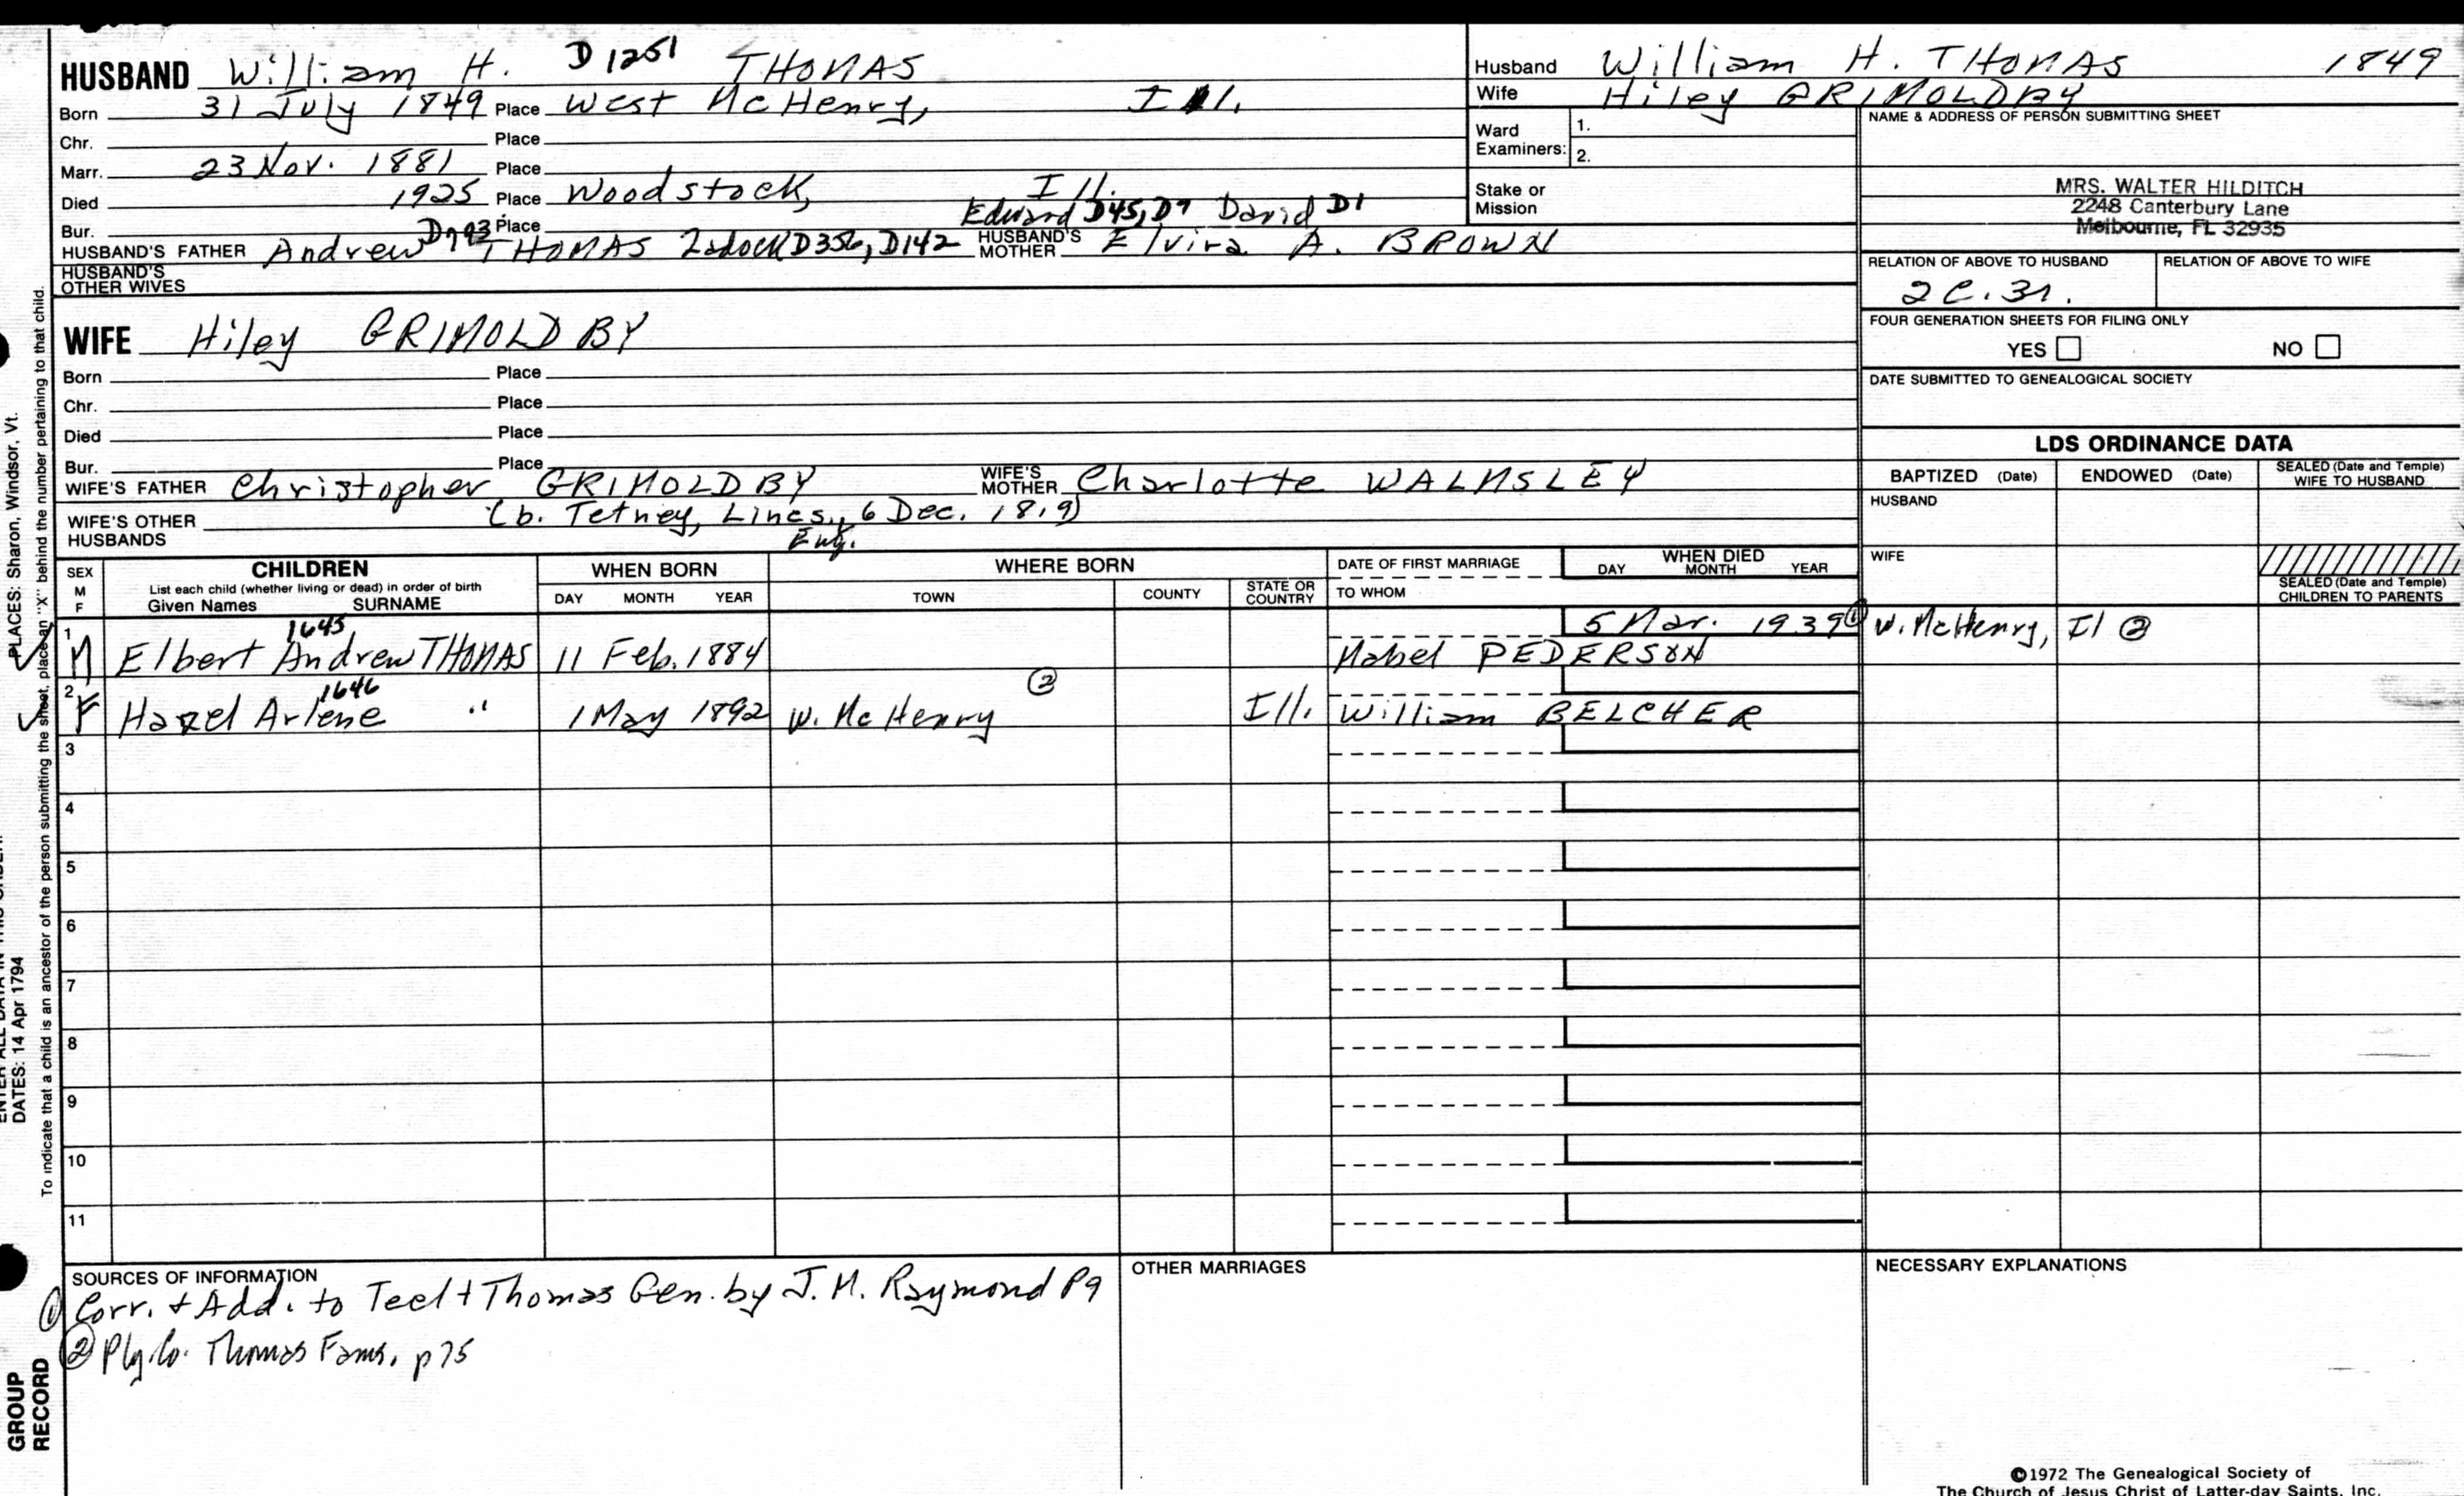 HUSBAND William H. D1251 THOMAS
Born 31 July 1849 Place West McHenry, Ill.
Chr. Place
Marr. 23 Nov. 1881 Place
Died 1925 Place Woodstock, Ill.
Bur. Place Edward D45, D9 David D1
HUSBAND'S FATHER Andrew D793 THOMAS Zadock D356, D142 HUSBAND'S MOTHER Elvira A. BROWN
HUSBAND'S OTHER WIVES
WIFE Hiley GRIMOLDBY
Born Place
Chr. Place
Died Place
Bur. Place
WIFE'S FATHER Christopher GRIMOLDBY WIFE'S MOTHER Charlotte WALMSLEY
(b. Tetney, Lincs., 6 Dec. 1819)
Eng.
WIFE'S OTHER HUSBANDS
Husband William H. THOMAS 1849
Wife Hiley GRIMOLDBY
Ward Examiners: 1.
2.
Stake or Mission
NAME & ADDRESS OF PERSON SUBMITTING SHEET
MRS. WALTER HILDITCH
2248 Canterbury Lane
Melbourne, FL 32935
RELATION OF ABOVE TO HUSBAND RELATION OF ABOVE TO WIFE
2C.3r.
FOUR GENERATION SHEETS FOR FILING ONLY
YES NO
DATE SUBMITTED TO GENEALOGICAL SOCIETY
LDS ORDINANCE DATA
BAPTIZED (Date) ENDOWED (Date) SEALED (Date and Temple) WIFE TO HUSBAND
HUSBAND
WIFE
SEALED (Date and Temple) CHILDREN TO PARENTS
SEX M F
CHILDREN
List each child (whether living or dead) in order of birth
Given Names SURNAME
WHEN BORN
DAY MONTH YEAR
WHERE BORN
TOWN COUNTY STATE OR COUNTRY
DATE OF FIRST MARRIAGE
TO WHOM
WHEN DIED
DAY MONTH YEAR
1 M Elbert Andrew THOMAS 1645 11 Feb. 1884 5 Mar. 1939 ① W. McHenry, Il ②
Mabel PEDERSON
2 F Hazel Arlene 1646 " 1 May 1892 W. McHenry ② Ill. William BELCHER
3
4
5
6
7
8
9
10
11
SOURCES OF INFORMATION
① Corr. + Add. to Teel + Thomas Gen. by J. M. Raymond P9
② Ply. Co. Thomas Fams. p75
OTHER MARRIAGES
NECESSARY EXPLANATIONS
©1972 The Genealogical Society of
The Church of Jesus Christ of Latter-day Saints, Inc.
PLACES: Sharon, Windsor, Vt.
DATES: 14 Apr 1794
To indicate that a child is an ancestor of the person submitting the sheet, place an "X" behind the number pertaining to that child.
GROUP
RECORD